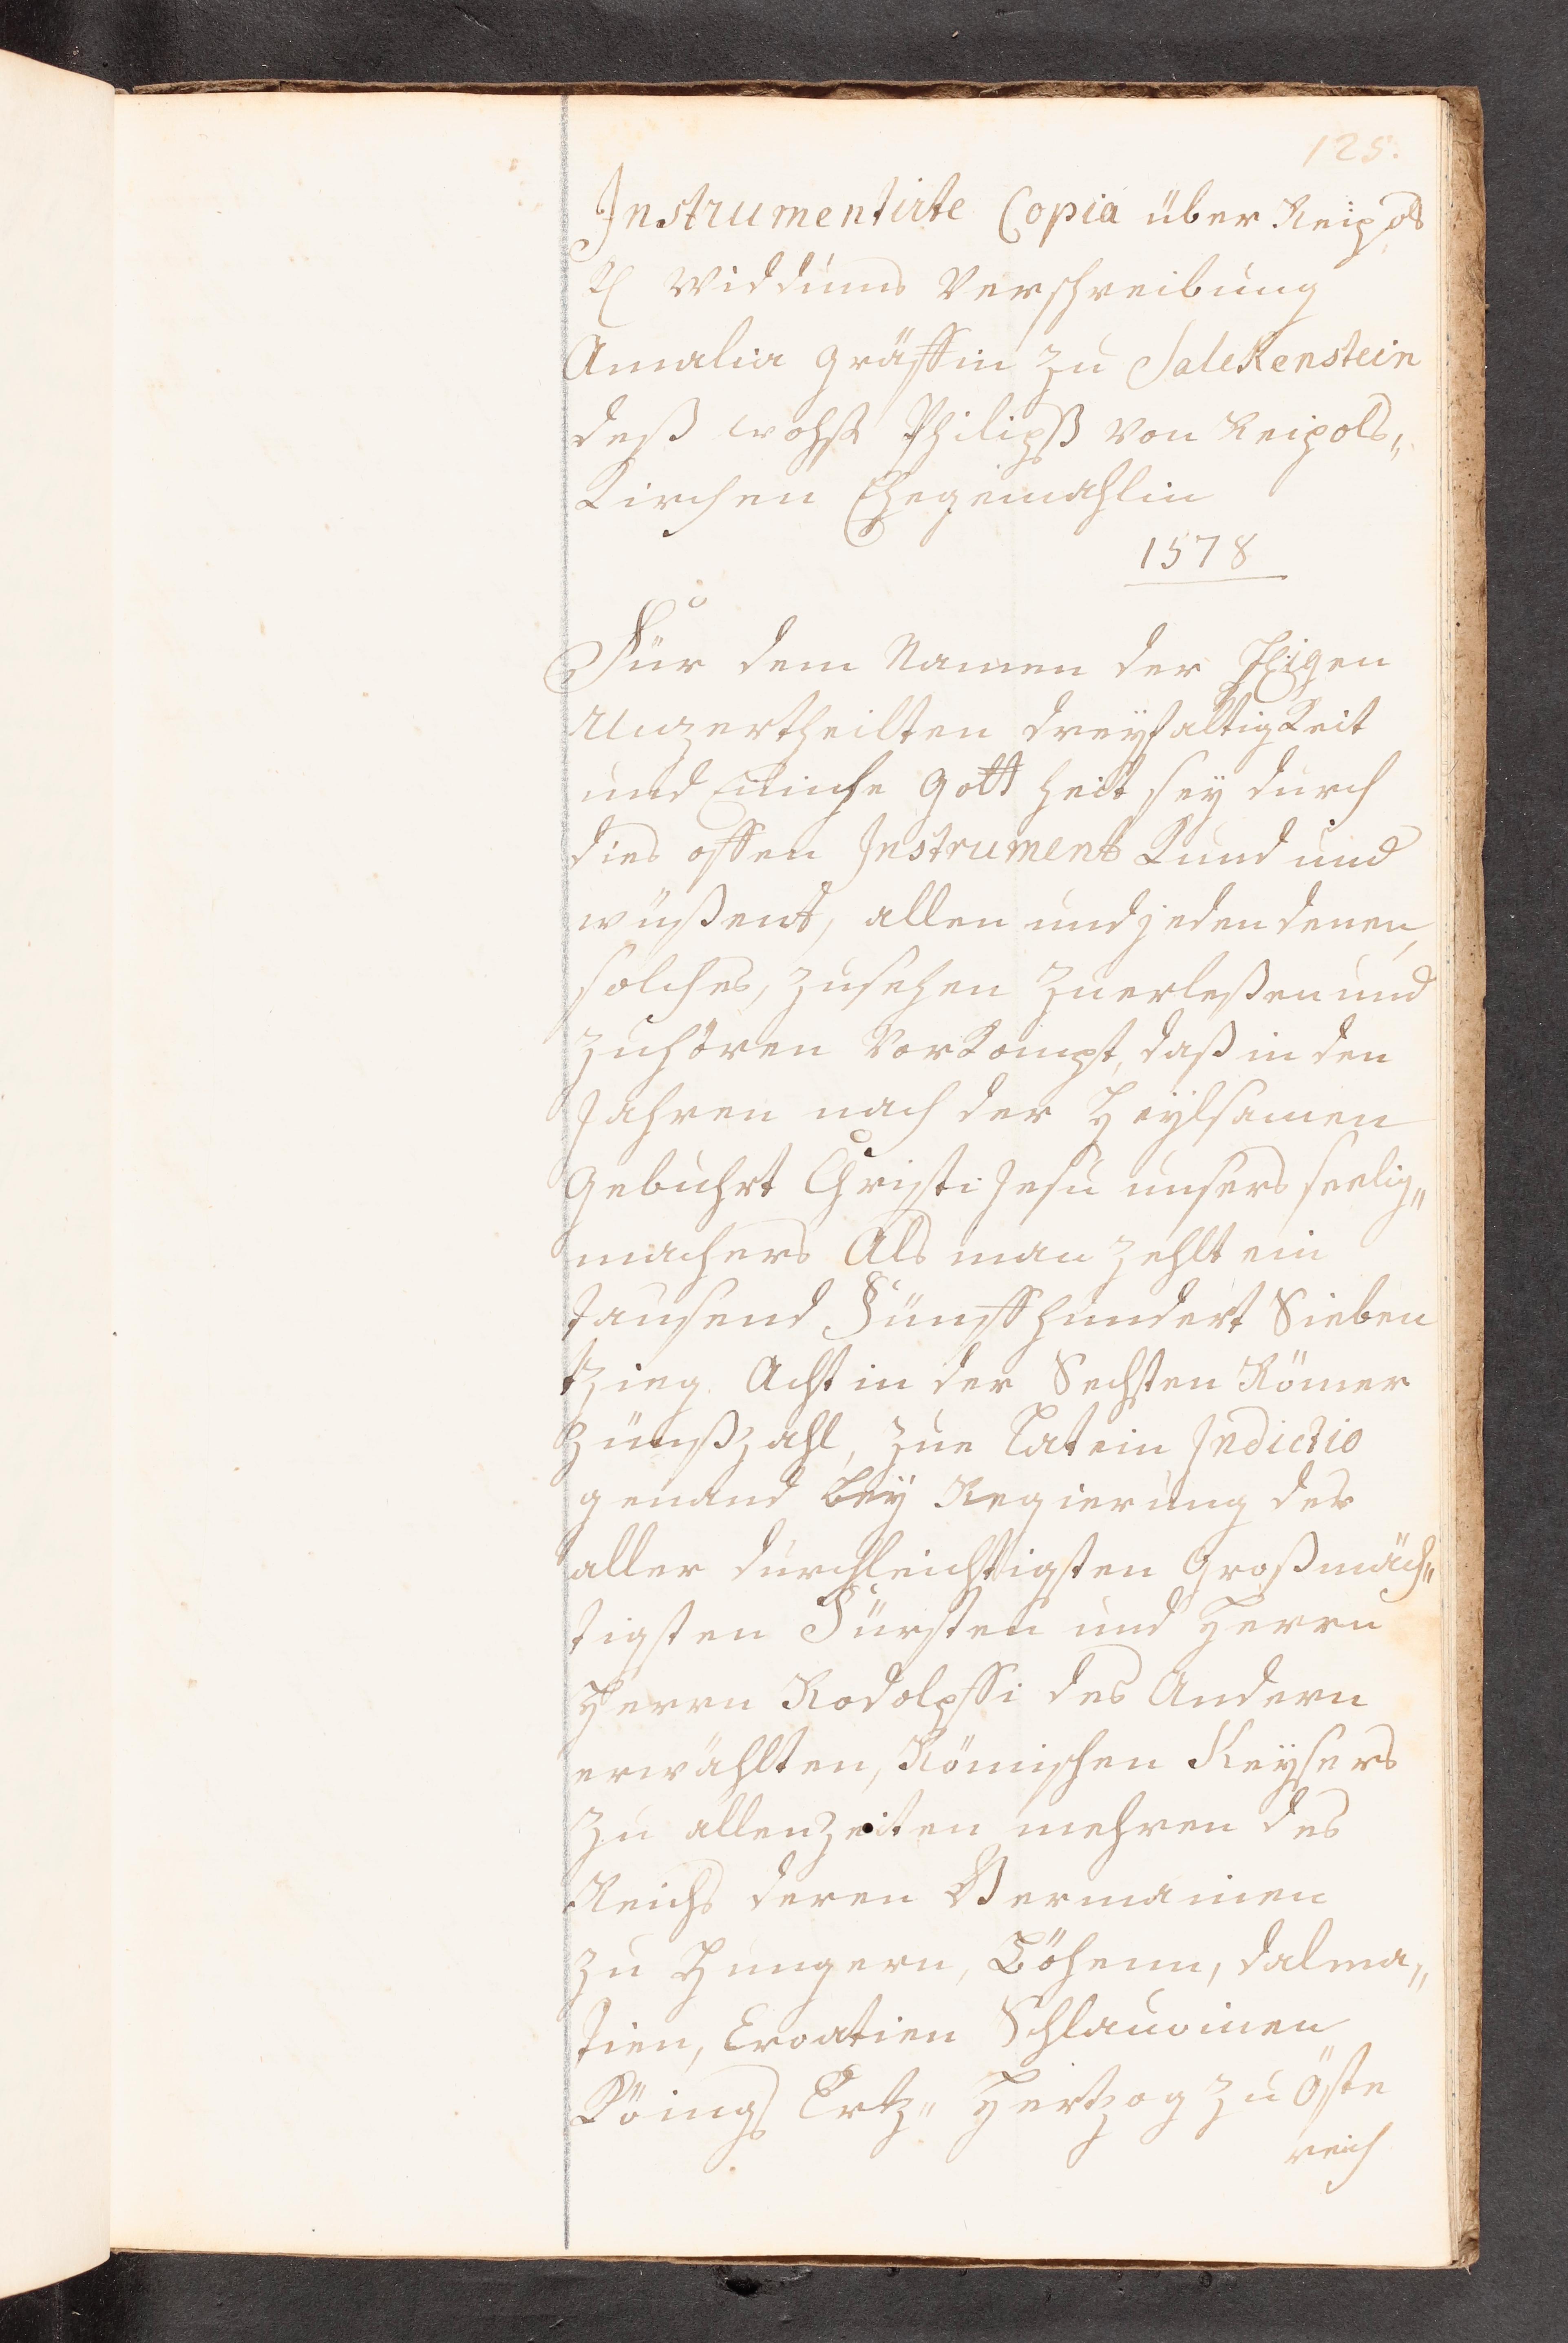 125.
Instrumentirte Copia über Reipols
K Widdums Verschreibung
Amalia Gräffin zu Salekenstein
deß wohlst Philipß von Reipols„
Kirchen Ehegemahlin
1578
Für dem Namen der Hligen
Unzertheilten dreyfaltigkeit
und Einiche Gott heit seÿ durch
dies offen Instrument Kund und
wüßent, allen und jeden denen,
solches, zusehen zuerleßen und
zuhören Vorkompt, daß in den
Jahren nach der Heylsamen
Gebuhrt Christi Jesu unsers seelig„
machers Als man zehlt ein
tausend Fünffhundert Sieben
tzieg Acht in der Sechsten Römer
Zünßzahl, zue Latein Indictio
genand beÿ Regierung des
aller durchleichtigsten Großmäch„
tigsten Fürsten und Herrn
Herrn Rodolpffi des Andern
erwählten, Römischen Keÿsers
zu allenzeiten mehren des
Reichs deren Germainen
zu Hungern, Böhemn, dalma„
tien, Croatien Schlauoinen
Köings Ertz„ Hertzog zu Öste
reich